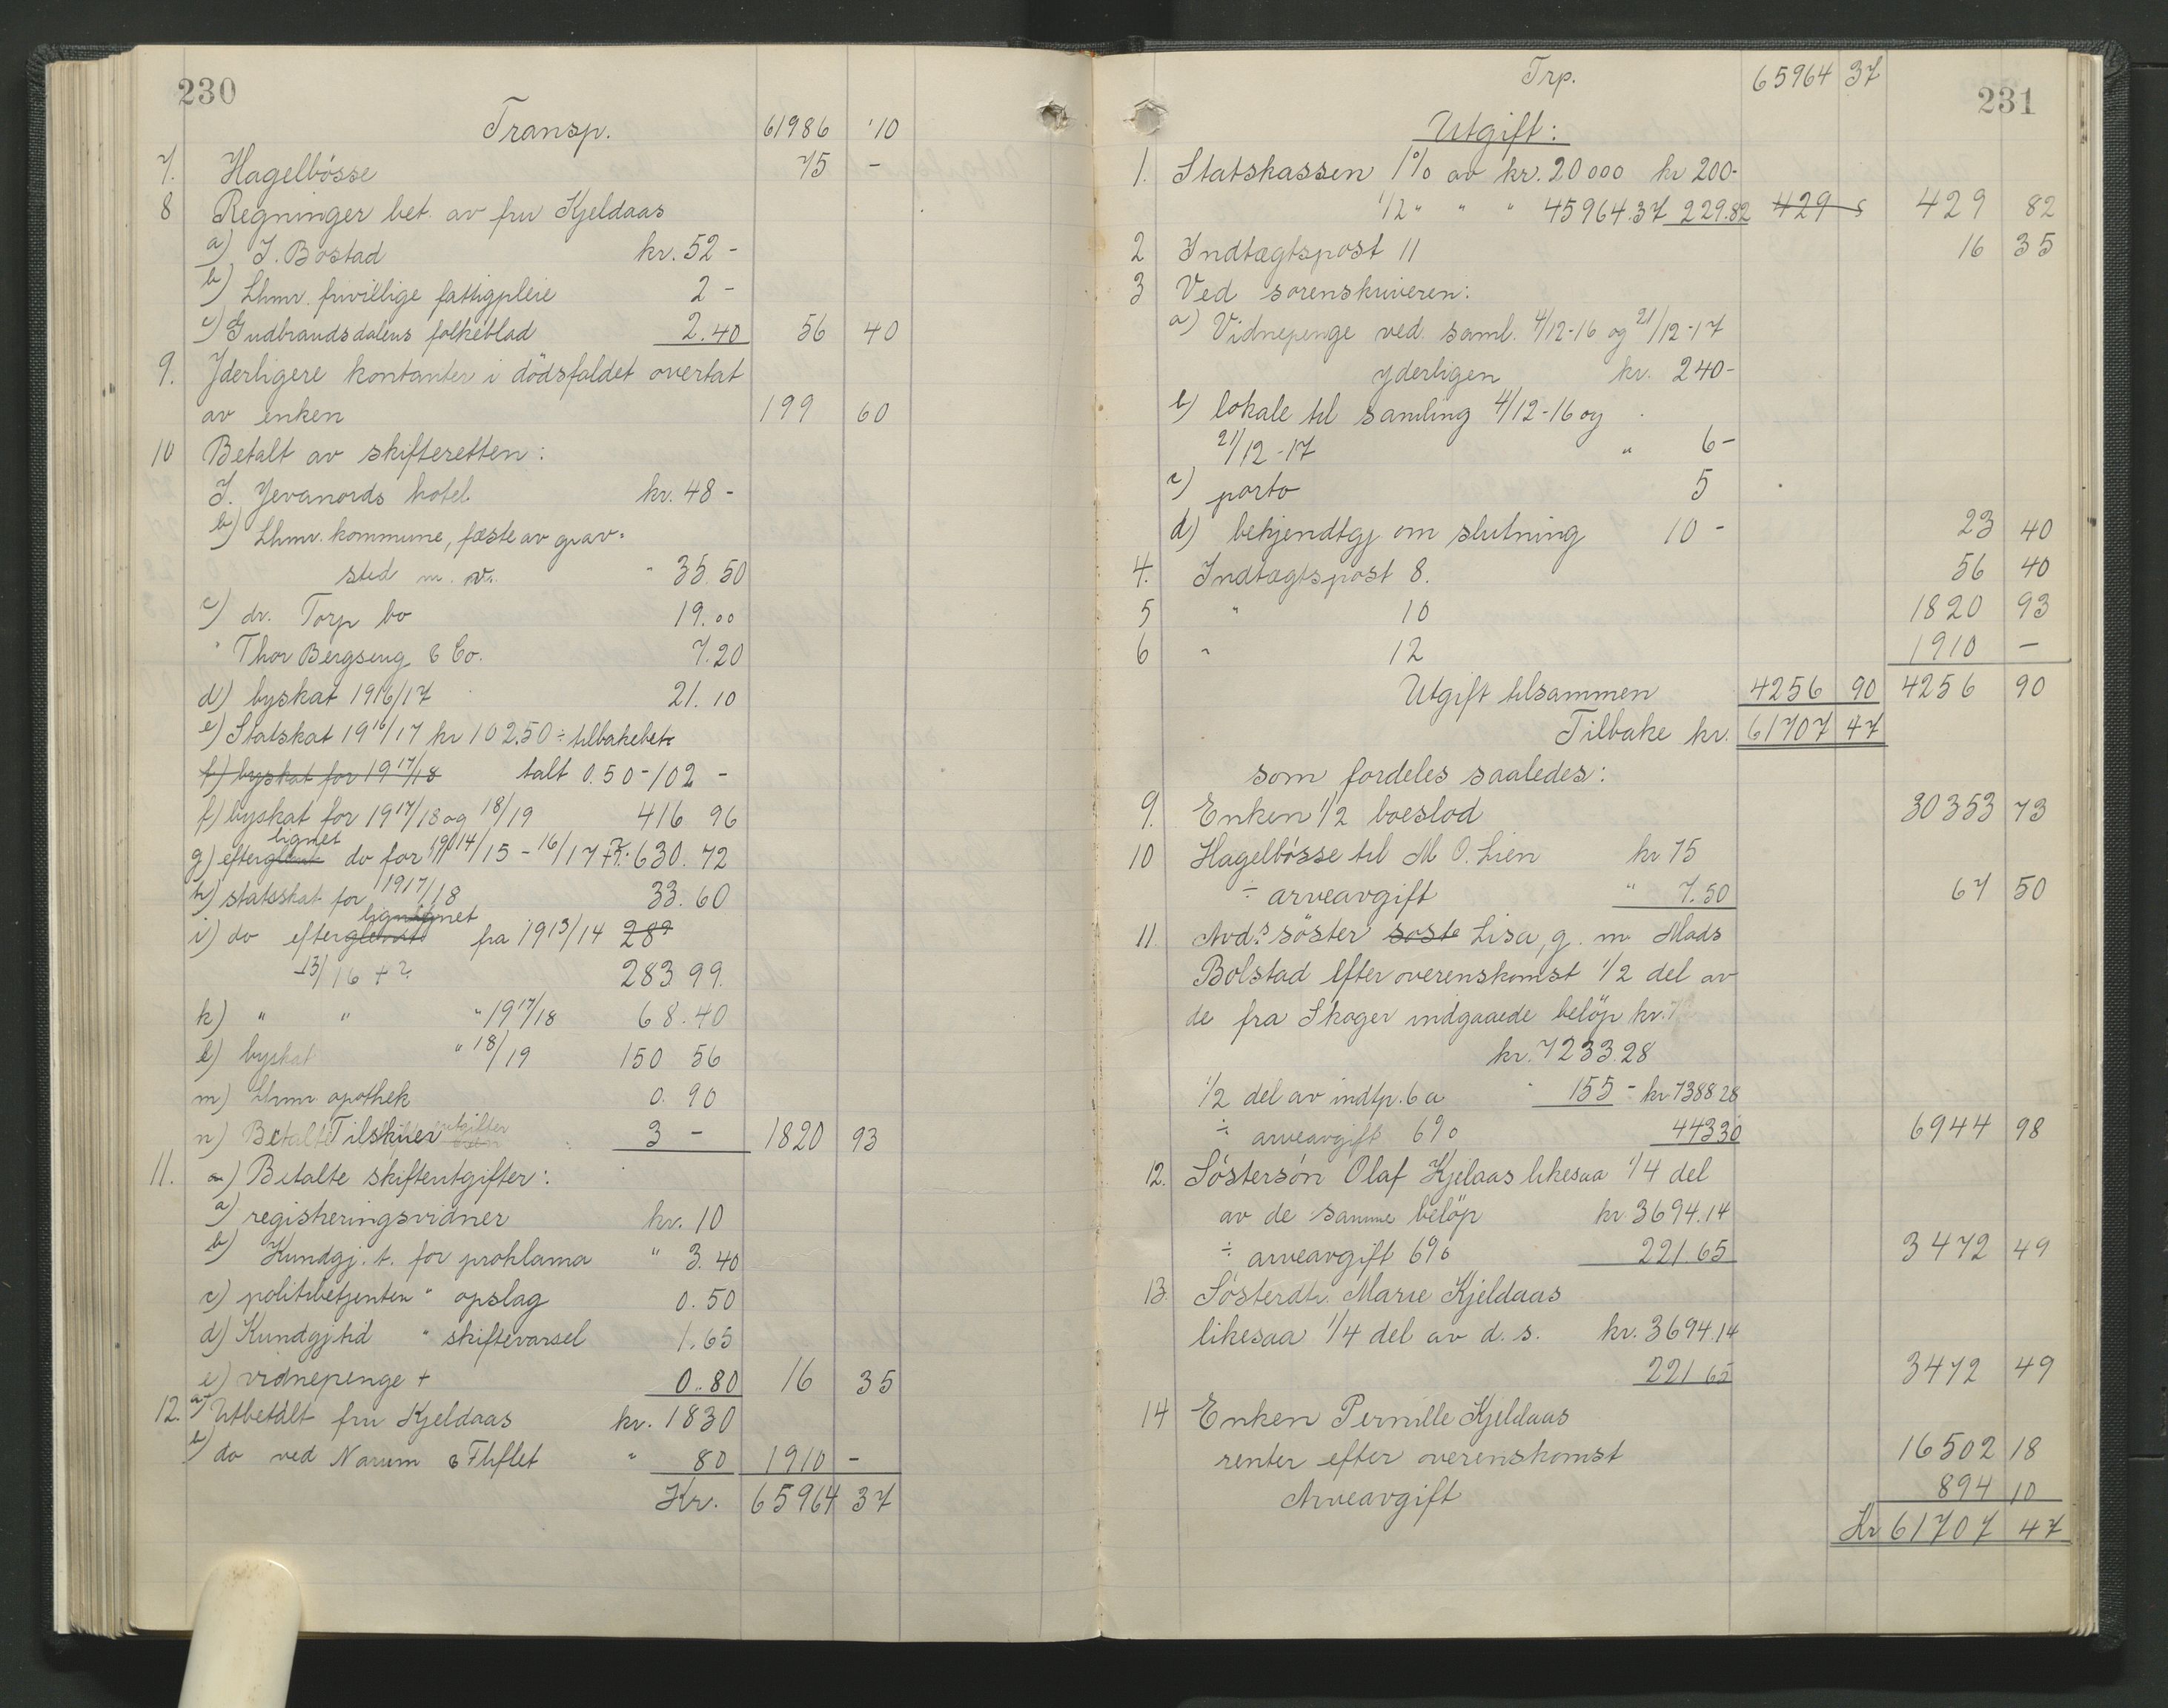 230
Transp. 61986 10
7. Hagelbösse 75 -
8 Regninger bet. av fru Kjeldaas
a) J. Bostad kr. 52 -
b) Lhmr. frivillige fattigpleie 2 -
c) Gudbrandsdalens folkeblad 2.40 56 40
9. Yderligere kontanter i dödsfaldet overtat
av enken 199 60
10 Betalt av skifteretten:
J. Jevanords hotel kr. 48 -
b) Lhmr. kommune, fæste av grav-
sted m. v. " 35.50
c) dr. Torp bo 19.00
" Thor Bergseng & Co. 7.20
d) byskat 1916/17 21.10
e) Statskat 1916/17 kr 102.50 ÷ tilbakebe-
f) byskat for 1917/18 talt 0.50 - 102 -
f) byskat for 1917/18 og 18/19 416 96
lignet
g) efterglemt do for 1914/15 - 16/17 630.72
h) statsskat for 1917/18 33.60
lignignet
i) do efterglemt fra 1913/14 289
-13/16 + ? 283 99.
k) " " " 1917/18 68.40
l) byskat " 18/19 150 56
m) Lhmr apothek 0.90
n) Betalte Tilskuer utgifter 3 - 1820 93
11. a) Betalte skifteutgifter:
a) registreringsvidner kr. 10
b) Kundgj. t. for proklama " 3.40
c) politibetjenten " opslag 0.50
d) Kundgj.tid " skiftevarsel 1.65
e) vidnepenge + 0.80 16 35
12. a) Utbetalt fru Kjeldaas kr. 1830
b) do ved Narum & Fliflet " 80 1910 -
Kr. 65964 37
231
Trp. 65964 37
Utgift:
1. Statskassen 1% av kr. 20000 kr 200-
1/2 " " " 45964.37 229.82 429 429 82
2 Indtægtspost 11 16 35
3 Ved sorenskriveren:
a) Vidnepenge ved saml. 4/12-16 og 21/12-17
yderligen kr. 240-
b) lokale til samling 4/12-16 og
21/12-17 " 6-
c) porto 5
d) bekjendtgj om slutning 10 - 23 40
4. Indtægtspost 8. 56 40
5 " 10 1820 93
6 " 12 1910 -
Utgift tilsammen 4256 90 4256 90
Tilbake kr. 61707 47
som fordeles saaledes:
9. Enken 1/2 boeslod 30353 73
10 Hagelbösse til M. O. Lien kr 75
÷ arveavgift " 7.50 67 50
11 Avd.s söster soste Lisa, g. m. Mads
Bolstad efter overenskomst 1/2 del av
de fra Skoger indgaaede belöp kr. 7
kr. 7233.28
1/2 del av indtp. 6 a " 155 - kr 7388 28
÷ arveavgift 6% 443 30 6944 98
12. Söstersön Olaf Kjelaas likesaa 1/4 del
av de samme belöp kr 3694.14
÷ arveavgift 6% 221.65 3472 49
13 Sösterdtr. Marie Kjeldaas
likesaa 1/4 del av d. s. kr. 3694.14
221 65 3472 49
14 Enken Pernille Kjeldaas
renter efter overenskomst 16502 18
Arveavgift 894 10
Kr 61707 47